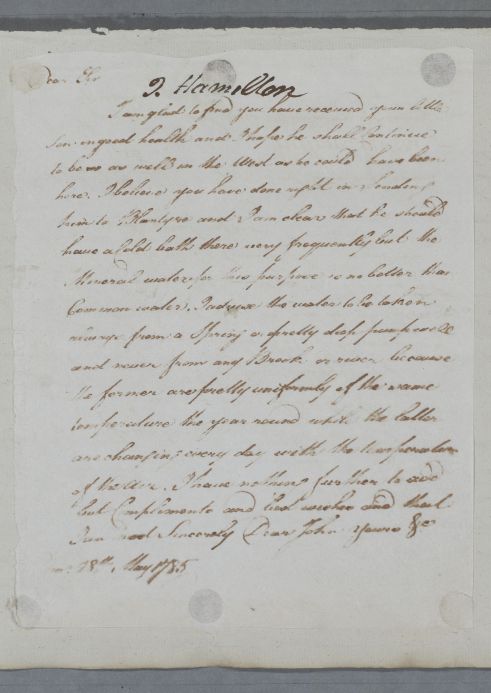 Dear Sir
J. Hamilton
I am glad to find you have received your little
Son in good health and I hope he shall Continue
to be so as well in the West as he could have been
here. I believe you have done right in sending
him to Blantyre and I am clear that he should
have a Cold bath there very frequently but the
Mineral water for this purpose is no better than
Common water. I advise the water to be taken
always from a Spring or pretty deep pump well
and never from any Brook or river because
the former are pretty uniformly of the same
temperature the year round while the latter
are changing every day with the temperature
of the Air. I have nothing further to add
but Compliments and best wishes and that
I am most Sincerely Dear John yours &c
28th. May 1785